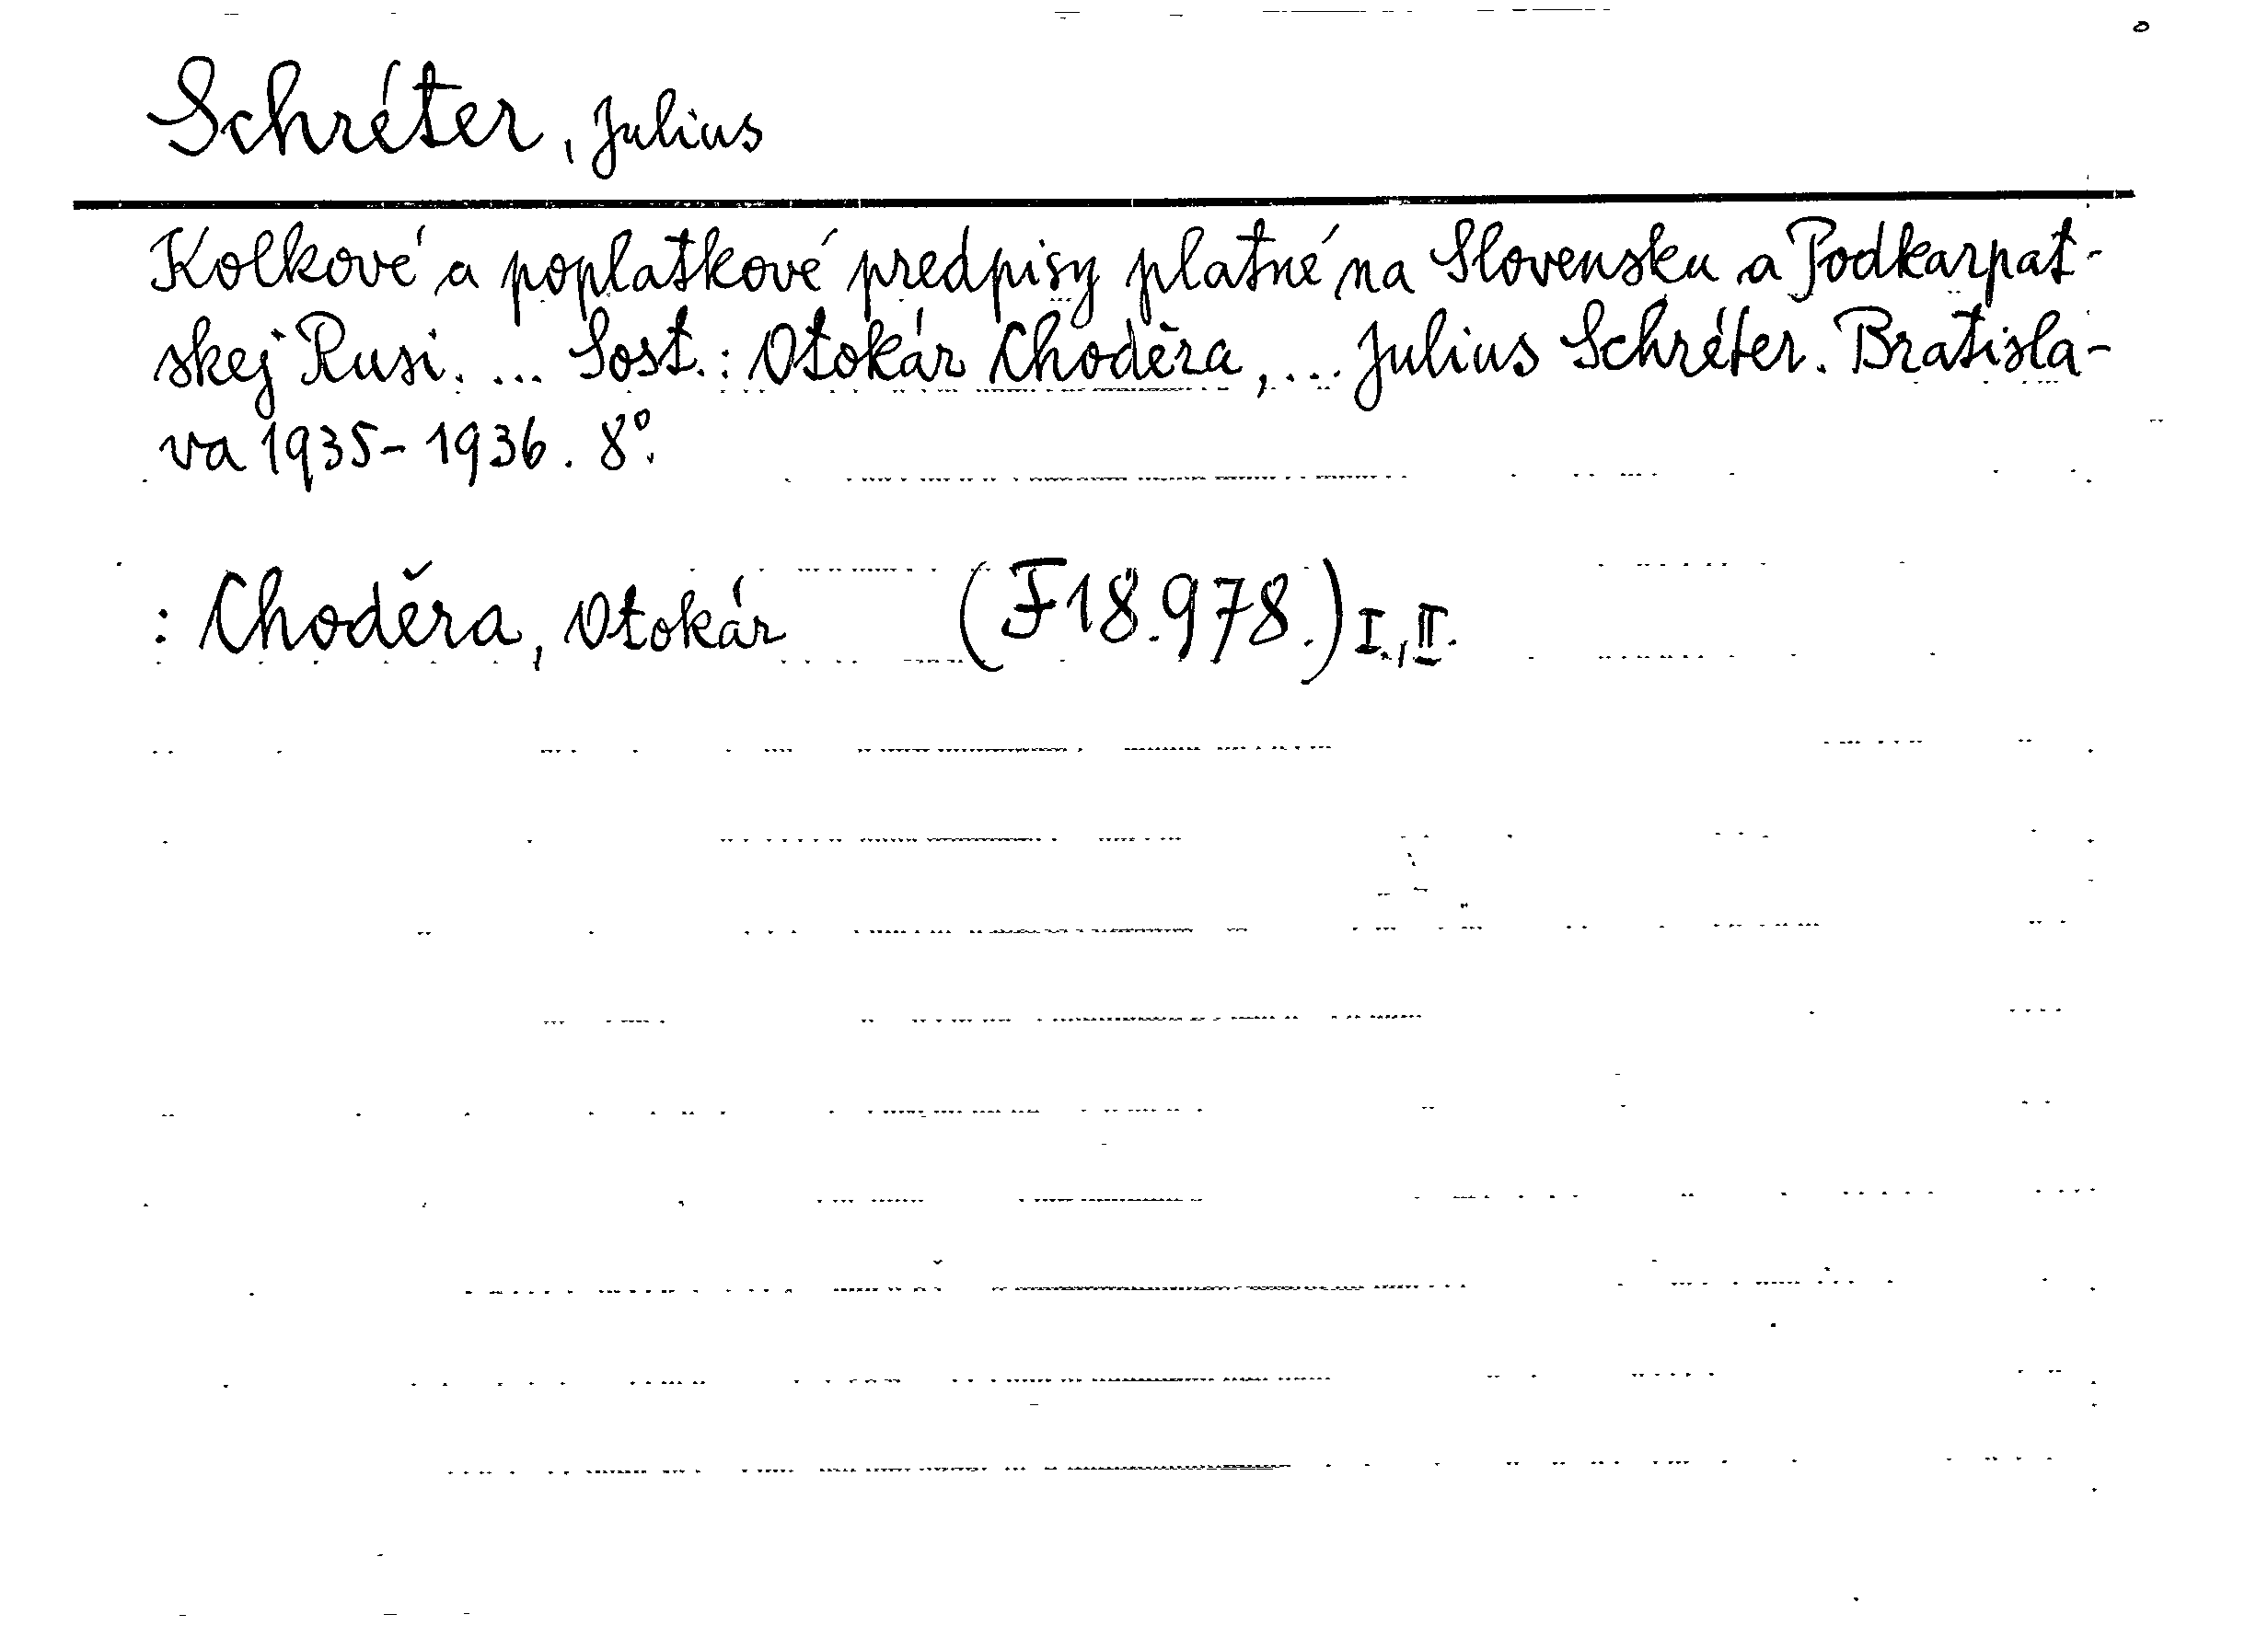 Schréter, Julius
Kolkové a poplatkové predpisy platné na Slovensku a Podkarpat-
skej Rusi. ... Sost.: Otokár Choděra, ... Julius Schréter. Bratisla-
va 1935-1936. 8°.
: Choděra, Otokár (F18.978.) I., II.